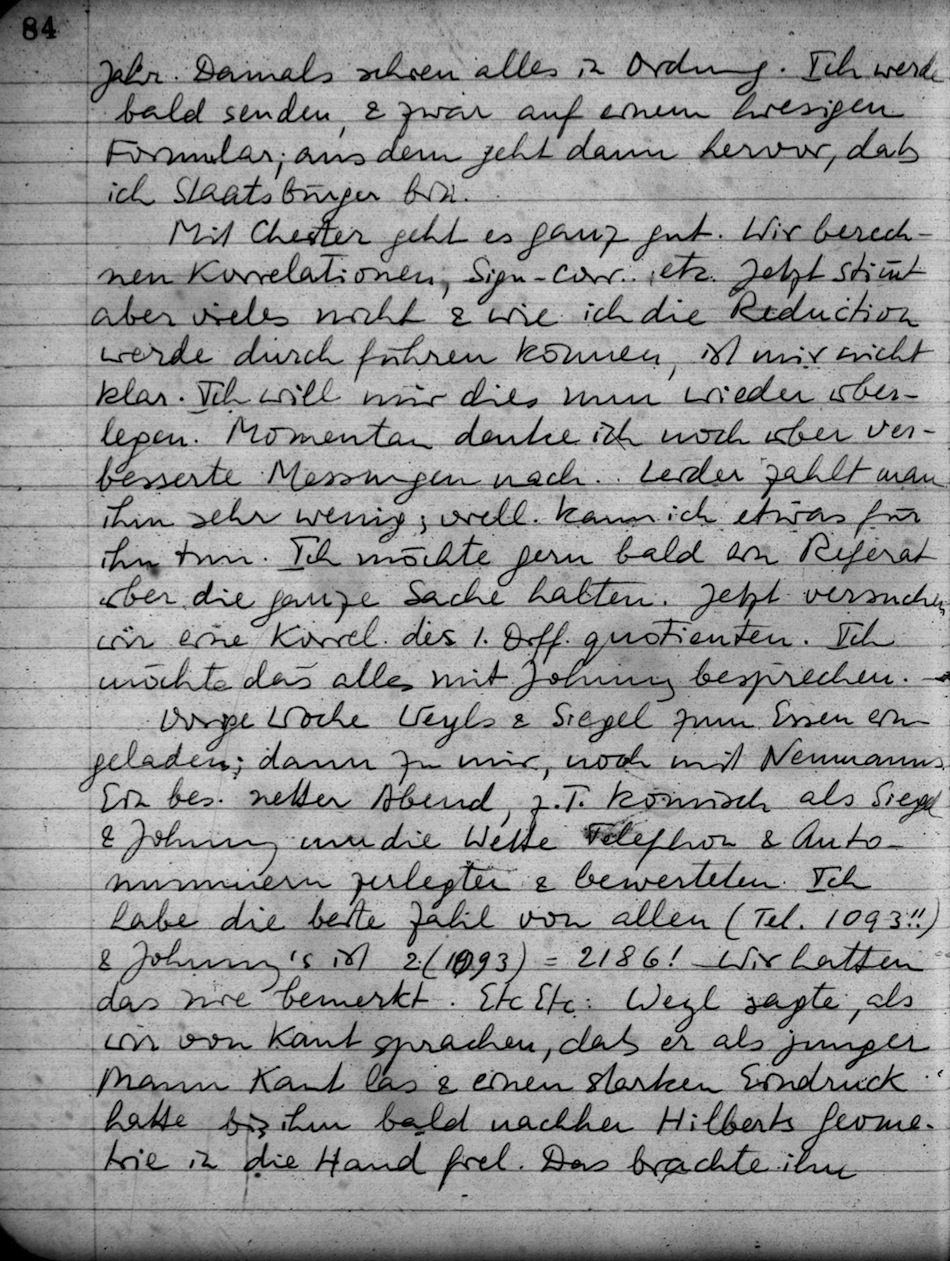 84
Jahr. Damals schien alles in Ordnung. Ich werde
bald senden, & zwar auf einem hiesigen
Formular; aus dem geht dann hervor, dass
ich Staatsbürger bin.
Mit Chester geht es ganz gut. Wir berech-
nen Korrelationen, Sign-corr.. etc. Jetzt stimt
aber vieles nicht & wie ich die Reduction
werde durch führen können, ist mir nicht
klar. Ich will mir dies nun wieder über-
legen. Momentan denke ich noch über ver-
besserte Messungen nach.. Leider zahlt man
ihm sehr wenig; viell. kann ich etwas für
ihn tun. Ich möchte gern bald ein Referat
über die ganze Sache halten. Jetzt versuchen
wir eine Korrel. des 1. Diff. quotienten. Ich
möchte das alles mit Johnny besprechen. —
Vorige Woche Weyls & Siegel zum Essen ein-
geladen; dann zu mir, noch mit Neumanns.
Ein bes. netter Abend, z.T. komisch als Siegel
& Johnny um die Wette Telephon & Auto-
nummern zerlegten & bewerteten. Ich
habe die beste Zahl von allen (Tel. 1093!!)
& Johnny's ist 2.(1093) = 2186! Wir hatten
das nie bemerkt. Etc Etc. Weyl sagte, als
wir von Kant sprachen, dass er als junger
Mann Kant las & einen starken Eindruck
hatte bis ihm bald nachher Hilberts Geome-
trie in die Hand fiel. Das brachte ihm